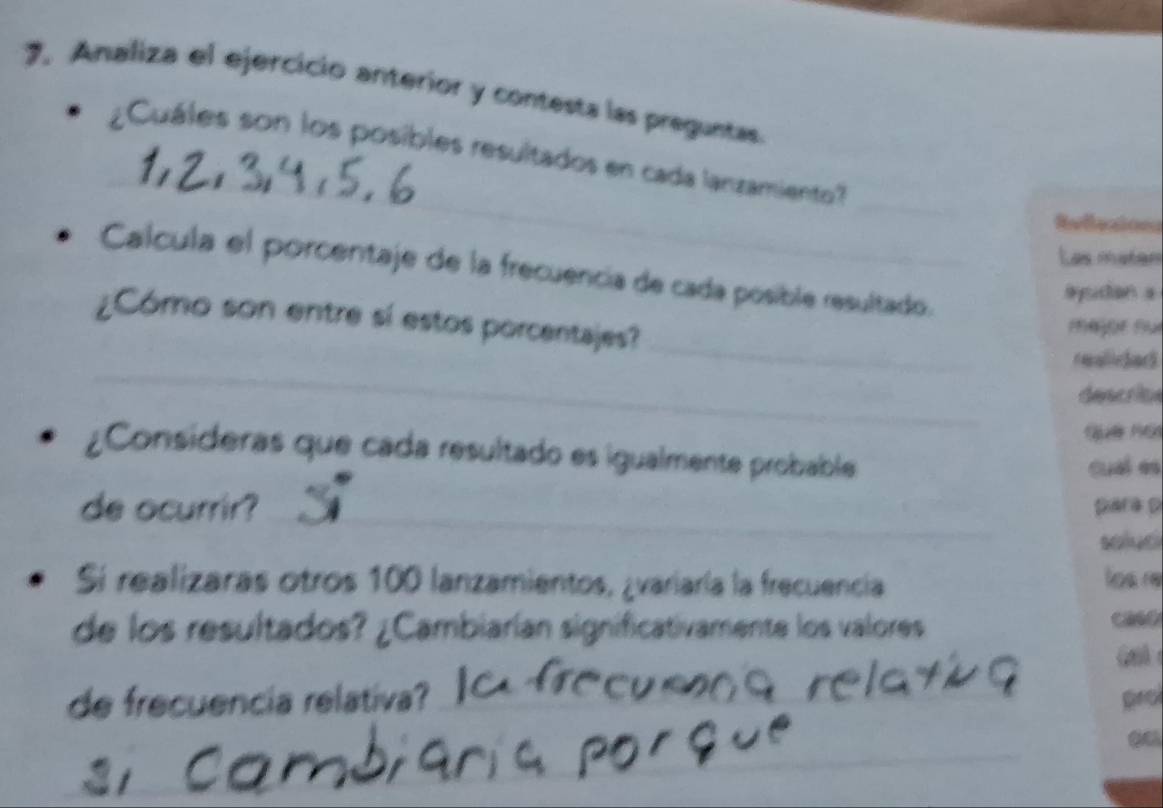 7. Analiza el ejercicio anterior y contesta las preguntas.
• ¿Cuáles son los posibles resultados en cada lanzamiento?
1, 2, 3, 4, 5, 6
• Calcula el porcentaje de la frecuencia de cada posible resultado.
¿Cómo son entre sí estos porcentajes?
• ¿Consideras que cada resultado es igualmente probable
de ocurrir? Si
• Si realizaras otros 100 lanzamientos, ¿variaría la frecuencia
de los resultados? ¿Cambiarían significativamente los valores
de frecuencia relativa? la frecuencia relativa
si cambiaria porque
Las matem
ayudan a
mejor nu
realidad
describe
que nos
cual es
para p
soluci
los re
caso
útil